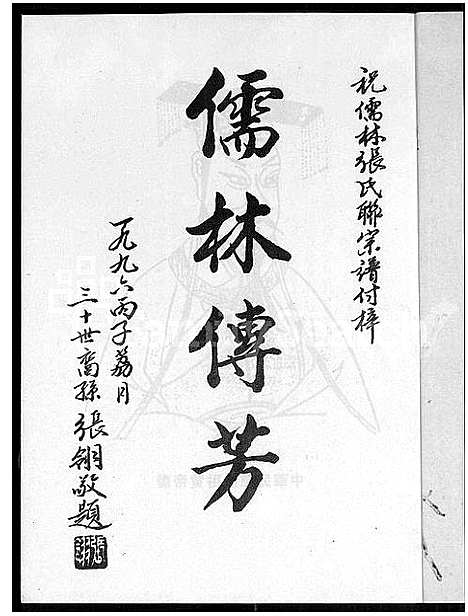 祝儒林張氏聯宗譜付梓
儒林傳芳
一九九六丙子荔月
三十世裔孫張翎敬題